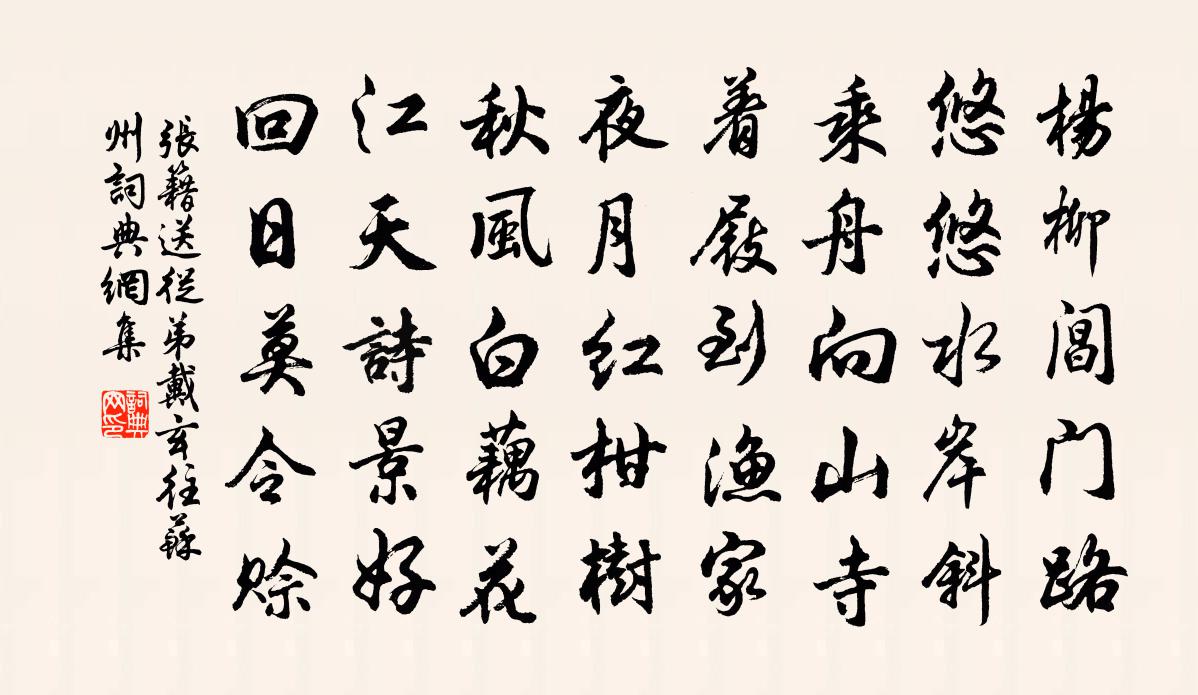 楊柳閶门路
悠悠水岸斜
乘舟向山寺
着屐到漁家
夜月红柑樹
秋風白藕花
江天詩景好
回日莫令赊
張籍送從弟戴玄往蘇
州詞典網集
詞典网印